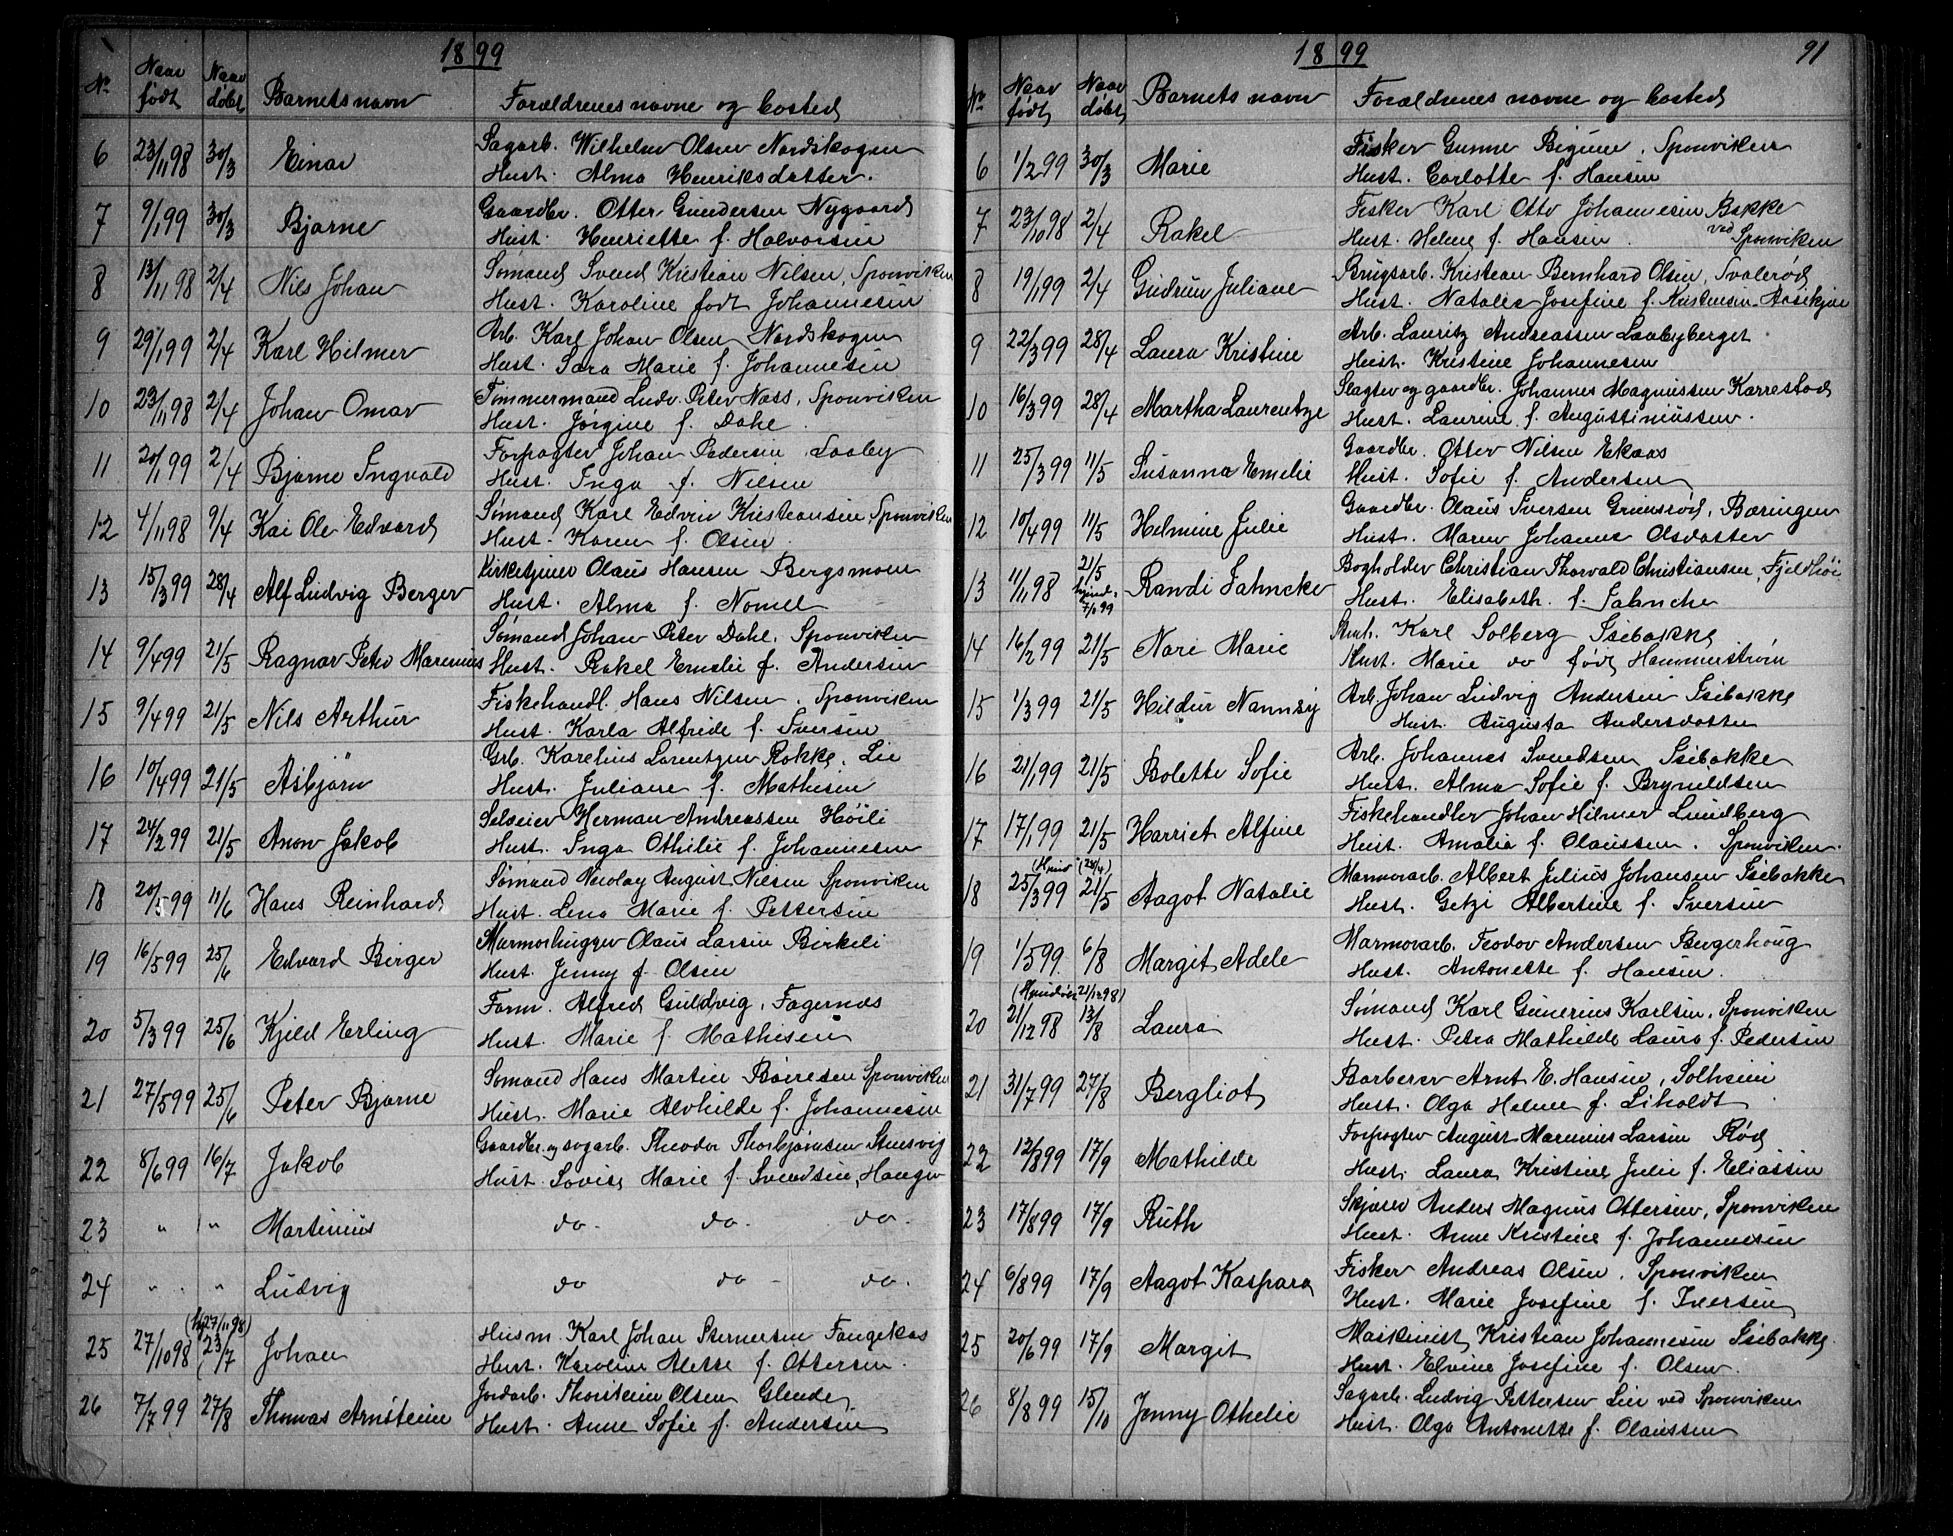 1899
No Naar født Naar døbt Barnets navn Forældrenes navne og bosted
6 23/11 98 30/3 Einar Sagarb. Wilhelm Olsen Nordskogen
Hust. Alma Henriksdatter.
7 9/1 99 30/3 Bjarne Gaardbr. Otter Gundersen Nygaard
Hust. Henriette f. Halvorsen
8 13/11 98 2/4 Nils Johan Sømand Svend Kristian Nilsen, Sponviken
Hust. Karoline født Johannesen
9 29/1 99 2/4 Karl Hilmer Arb. Karl Johan Olsen Nordskogen
Hust. Sara Marie f. Johannesen
10 23/11 98 2/4 Johan Omar Timmermand Ludv. Peter Næss, Sponviken
Hust. Jørgine f. Dahl.
11 20/1 99 2/4 Bjarne Ingvald Forpagter Johan Pedersen Laaby
Hust. Inga f. Nilsen
12 4/11 98 9/4 Kai Ole Edvard Sømand Karl Edvin Kristiansen, Sponviken
Hust. Karen f. Olsen.
13 15/3 99 28/4 Alf Ludvig Berger Kirketjener Olaus Hansen Bergsmoen
Hust. Alma f. Nomel
14 9/4 99 21/5 Ragnar Peter Marenius Sømand Johan Peter Dahl, Sponviken
Hust. Rakel Emelie f. Andersen
15 9/4 99 21/5 Nils Arthur Fiskehandl. Hans Nilsen, Sponviken
Hust. Karla Alfrede f. Iversen
16 10/4 99 21/5 Asbjørn Grb. Karelius Larentzen Rokke, Lie
Hust. Juliane f. Mathisen
17 24/2 99 21/5 Anon Jakob Selveier Herman Andreassen Høili
Hust. Inga Othilie f. Johannesen
18 20/5 99 11/6 Hans Reinhard Sømand Nicolay August Nilsen Sponviken
Hust. Lena Marie f. Pettersen
19 16/5 99 25/6 Edvard Birger Marmorhugger Olaus Larsen Birkeli
Hust. Jenny f. Olsen
20 5/3 99 25/6 Kjeld Erling Form. Alfred Guldvig, Fagernæs
Hust. Marie f. Mathisen
21 27/5 99 25/6 Peter Bjarne Sømand Hans Martin Børresen Sponviken
Hust. Marie Alvhilde f. Johannesen
22 8/6 99 16/7 Jakob Gaardbr. og sagarb. Theodor Thorbjørnsen Stensvig
Hust. Lovise Marie f. Svendsen, Haugen
23 " " Martinius do. do. do.
24 " " Ludvig do do do.
(hj 27/11 98)
25 27/10 98 (23/7 Johan Husm. Karl Johan Sternersen Fangekas
Hust. Karoline Alette f. Ottersen.
26 7/7 99 27/8 Thomas Arnsteine Jordarb. Thorstein Olsen Glende
Hust. Anne Sofie f. Andersen
1899 91
No Naar født Naar døbt Barnets navn Forældrenes navne og bosted
6 1/2 99 30/3 Marie Fisker Gunne Bigum, Sponviken
Hust. Carlotte f. Hansen
7 23/10 98 2/4 Rakel Fisker Karl Otto Johannesen Bakke
Hust. Helene f. Hansen. ved Sponviken
8 19/1 99 2/4 Gudrun Juliane Brugsarb. Kristian Bernhard Olsen, Svalerød
Hust. Natalie Josefine f. Kristensen
9 22/3 99 28/4 Laura Kristine Arb. Lauritz Andreassen Laabyberget
Hust. Kristine Johannesen
10 16/3 99 28/4 Martha Laurentze Slagter og gaardbr. Johannes Magnussen Karrestad
Hust. Laurene f. Augustinussen.
11 25/3 99 11/5 Susanna Emelie Gaardbr. Otter Nilsen Ekaas
Hust. Sofie f. Andersen
12 10/4 99 11/5 Helmine Julie Gaardbr. Olaus Iversen Grimsrød, Bæringen
Hust. Maren Johanne Olsdatter
13 11/11 98 21/5 hjemd. 7/1 99 Randi Jahncke Bogholder Christian Thorvald Christiansen, Fjeldhøi
Hust. Elisabeth f. Jahncke
14 16/2 99 21/5 Nari Marie Karl Solberg Isebakke
Hust. Marie do født Hammerstrøm
15 1/3 99 21/5 Hildur Nannsy Arb. Johan Ludvig Andersen Isebakke
Hust. Augusta Andersdatter
16 21/1 99 21/5 Bolette Sofie Arb. Johannes Svendsen Isebakke
Hust. Alma Sofie f. Bryneldsen
17 17/1 99 21/5 Harriet Alfine Fiskehandler Johan Hilmer Lundberg
Hust. Amalia f. Olaussen. Sponviken.
(Hjemd (28/4)
18 25/3 99 21/5 Aagot Natalie Marmorarb. Albert Julius Johansen Isebakke
Hust. Getze Albertine f. Iversen
19 1/5 99. 6/8 Margit Adele Marmorarb. Teodor Andersen Bergerhoug
Hust. Antonette f. Hansen.
(Hjemdøbt 21/12 98)
20 21/12 98 13/8 Laura Sømand Karl Gunerius Karlsen, Sponviken
Hust. Petra Mathilde Laura f. Pedersen
21 31/7 99 27/8 Bergliot Barberer Arnt E. Hansen, Solheim
Hust. Olga Helene f. Liholdt
22 12/8 99 17/9 Mathilde Forpagter August Marenius Larsen Rød
Hust. Laura Kristine Julie f. Eliassen
23 17/8 99 17/9 Ruth Skjærer Anders Magnus Ottersen, Sponviken
Hust. Anne Kristine f. Johannesen
24 6/8 99 17/9 Aagot Kaspara Fisker Andreas Olsen, Sponviken
Hust. Marie Josefine f. Iversen
25 20/6 99 17/9 Margit Maskinist Kristian Johannesen Isebakke
Hust. Elvine Josefine f. Olsen.
26 8/8 99 15/10 Jenny Othelie Sagarb. Ludvig Pettersen Lie ved Sponviken
Hust. Olga Antonette f. Olaussen